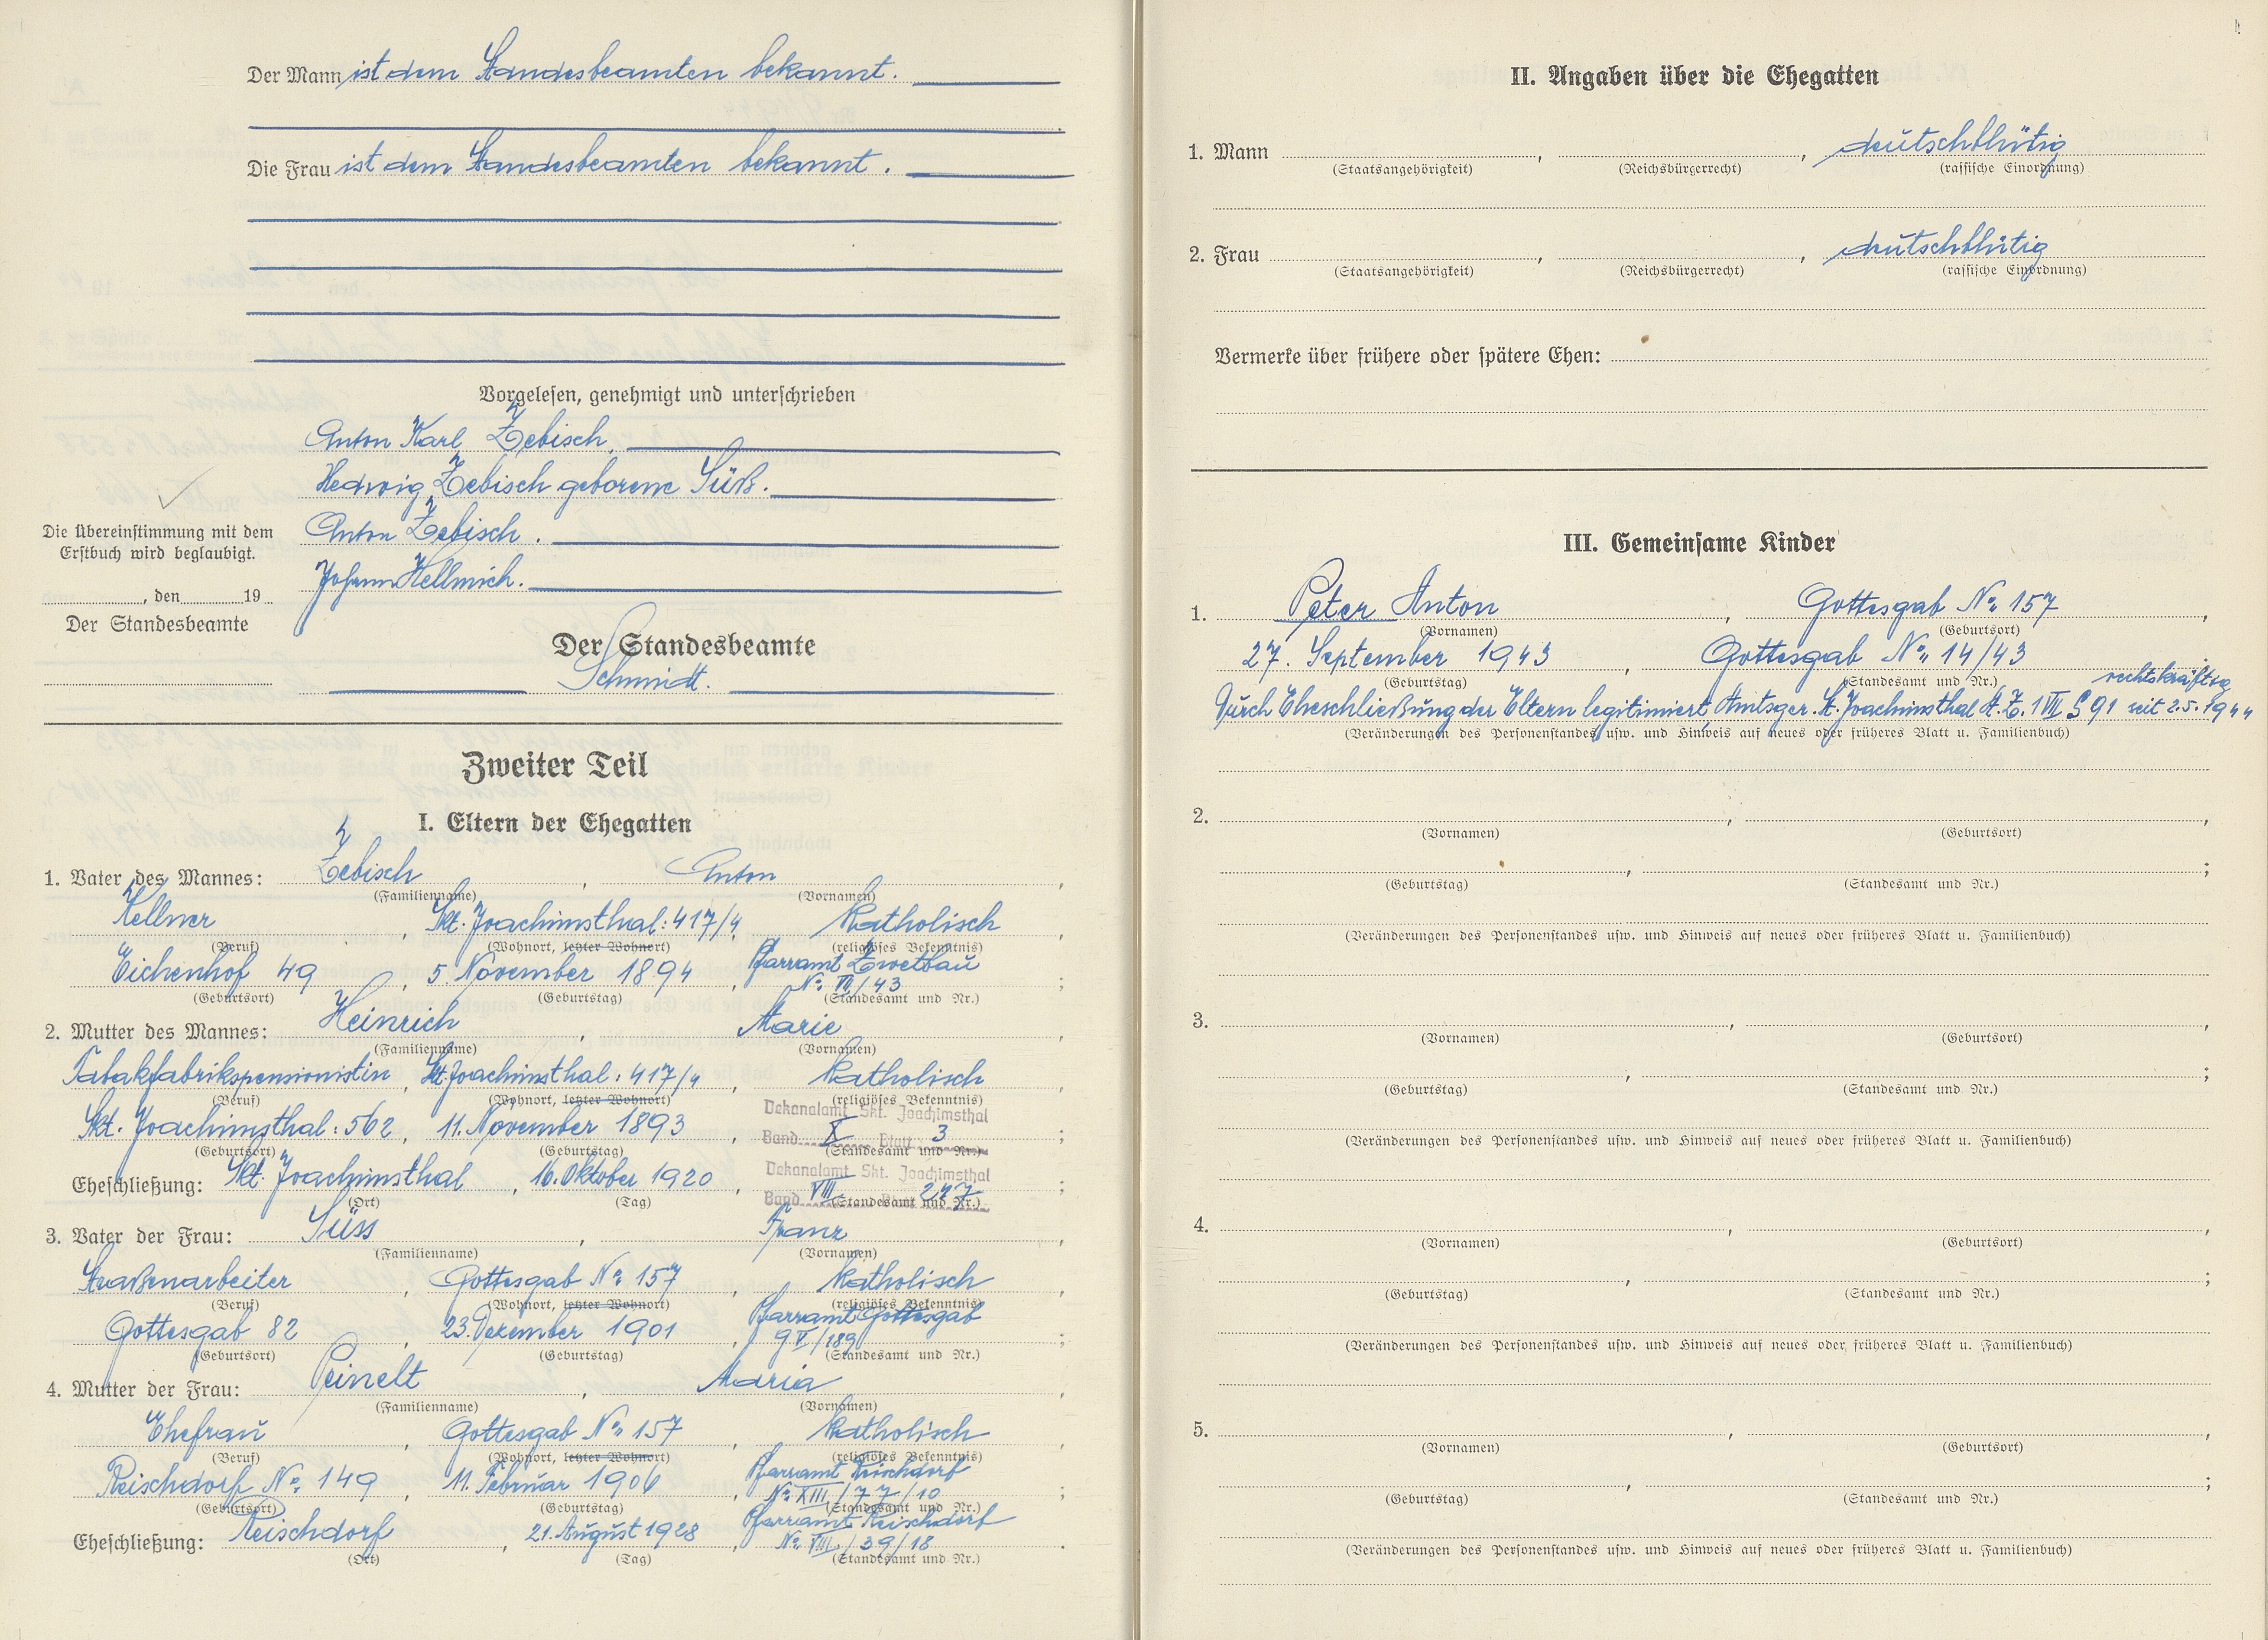 Der Mann ist dem Standesbeamten bekannt.
Die Frau ist dem Standesbeamten bekannt.
Vorgelesen, genehmigt und unterschrieben
Anton Karl Zebisch.
Hedwig Zebisch geborene Süß.
Anton Zebisch.
Johann Hellmich.
Die Übereinstimmung mit dem
Erstbuch wird beglaubigt.
, den 19
Der Standesbeamte
Der Standesbeamte
Schmidt.
Zweiter Teil
I. Eltern der Ehegatten
1. Vater des Mannes: Zebisch, Anton,
(Familienname) (Vornamen)
Kellner, Skt. Joachimsthal: 417/4, katholisch
(Beruf) (Wohnort, letzter Wohnort) (religiöses Bekenntnis)
Eichenhof 49, 5. November 1894, Pfarramt Zwetbau
No. III/43;
(Geburtsort) (Geburtstag) (Standesamt und Nr.)
2. Mutter des Mannes: Heinrich, Marie,
(Familienname) (Vornamen)
Tabakfabrikspensionistin, Skt. Joachimsthal: 417/4, katholisch
(Beruf) (Wohnort, letzter Wohnort) (religiöses Bekenntnis)
Dekanalamt Skt. Joachimsthal
Skt. Joachimsthal: 562, 11. November 1893, Band X Blatt 3;
(Geburtsort) (Geburtstag) (Standesamt und Nr.)
Dekanalamt Skt. Joachimsthal
Eheschließung: Skt. Joachimsthal, 16. Oktober 1920, Band VIII Blatt 227;
(Ort) (Tag) (Standesamt und Nr.)
3. Vater der Frau: Süss, Franz,
(Familienname) (Vornamen)
Straßenarbeiter, Gottesgab No. 157, katholisch
(Beruf) (Wohnort, letzter Wohnort) (religiöses Bekenntnis)
Gottesgab 82, 23. Dezember 1901, Pfarramt Gottesgab
9 V/189;
(Geburtsort) (Geburtstag) (Standesamt und Nr.)
4. Mutter der Frau: Peinelt, Maria,
(Familienname) (Vornamen)
Ehefrau, Gottesgab No. 157, katholisch
(Beruf) (Wohnort, letzter Wohnort) (religiöses Bekenntnis)
Reischdorf No. 149, 11. Februar 1906, Pfarramt Reischdorf
No. XIII/77/10;
(Geburtsort) (Geburtstag) (Standesamt und Nr.)
Eheschließung: Reischdorf, 21. August 1928, Pfarramt Reischdorf
No. VIII/39/18.
(Ort) (Tag) (Standesamt und Nr.)
II. Angaben über die Ehegatten
1. Mann , , deutschblütig
(Staatsangehörigkeit) (Reichsbürgerrecht) (rassische Einordnung)
2. Frau , , deutschblütig
(Staatsangehörigkeit) (Reichsbürgerrecht) (rassische Einordnung)
Vermerke über frühere oder spätere Ehen:
III. Gemeinsame Kinder
1. Peter Anton, Gottesgab No. 157,
(Vornamen) (Geburtsort)
27. September 1943, Gottesgab No. 14/43
(Geburtstag) (Standesamt und Nr.)
rechtskräftig
Durch Eheschließung der Eltern legitimiert, Amtsger. St. Joachimsthal A.Z. 1 VII S 91 seit 2.5.1944
(Veränderungen des Personenstandes usw. und Hinweis auf neues oder früheres Blatt u. Familienbuch)
2. , ,
(Vornamen) (Geburtsort)
, ;
(Geburtstag) (Standesamt und Nr.)
(Veränderungen des Personenstandes usw. und Hinweis auf neues oder früheres Blatt u. Familienbuch)
3. , ,
(Vornamen) (Geburtsort)
, ;
(Geburtstag) (Standesamt und Nr.)
(Veränderungen des Personenstandes usw. und Hinweis auf neues oder früheres Blatt u. Familienbuch)
4. , ,
(Vornamen) (Geburtsort)
, ;
(Geburtstag) (Standesamt und Nr.)
(Veränderungen des Personenstandes usw. und Hinweis auf neues oder früheres Blatt u. Familienbuch)
5. , ,
(Vornamen) (Geburtsort)
, ;
(Geburtstag) (Standesamt und Nr.)
(Veränderungen des Personenstandes usw. und Hinweis auf neues oder früheres Blatt u. Familienbuch)